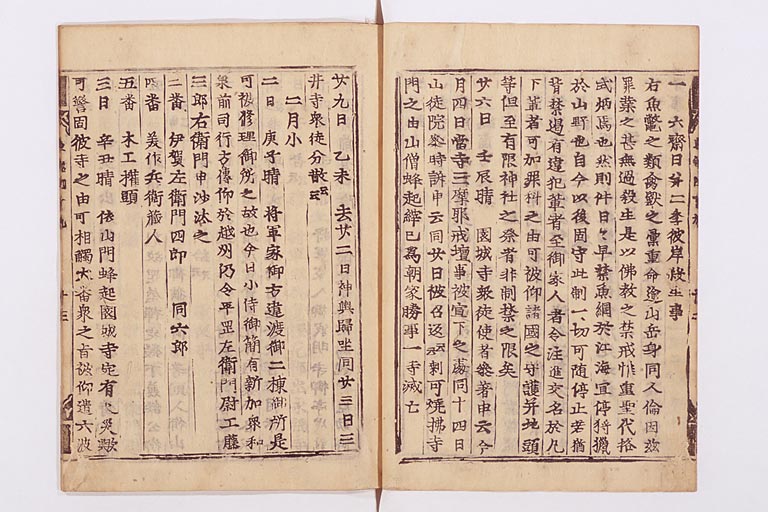 一 六齋日并二季彼岸殺生事
右魚鼈之類禽獸之彙重命逾山岳身同人倫因玆
罪業之甚無過殺生是以佛教之禁戒惟重聖代格
式炳焉也然則件日々早禁魚網於江海宜停狩獵
於山野也自今以後固守此制一切可随停止若猶
背禁遏有違犯輩者至御家人者令注進交名於凡
下輩者可加罪科之由可被仰諸國之守護并地頭
等但至有限神社之祭者非制禁之限矣
廿六日 壬辰晴 園城寺衆徒使者參著申云今
月四日當寺三摩耶戒壇事被宣下之處同十四日
山徒院參時訴申云同廿日被召返云云剩可燒拂寺
門之由山僧蜂起縡已為朝家勝事一寺滅亡
廿九日 乙未 去廿二日神輿歸坐同廿三日三
井寺衆徒分散云云
二月小
二日 庚子晴 將軍家御方違渡御二棟御所是
可被修理御所之故也今日小侍御簡有新加衆和
泉前司行方傳仰於越州仍令平罡左衛門尉工廳
三郎右衛門申沙汰之
二番 伊賀左衛門四郎 同六郎
四番 美作兵衛藏人
五番 木工權頭
三日 辛丑晴 依山門蜂起園城寺定有火災歟
可警固彼寺之由可相觸大番衆之旨被仰遣六波